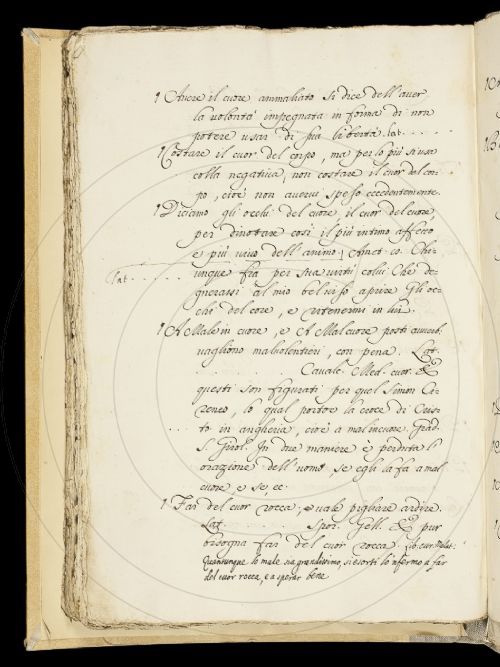 ¶ Avere il cuore ammaliato si dice dell'aver
la volontà impegnata in forma di non
potere usar di sua libertà. Lat. . . . .
¶ Costare il cuor del corpo, ma per lo più si usa
colla negativa, non costare il cuor del cor-
po, cioè non avervi speso eccedentemente.
¶ Diciamo gli occhi del cuore, il cuor del cuore,
per dinotare così il più intimo affetto
e più vivo dell'animo. Amet. 10. Chi-
Lat. . . . . .
unque sia per sua virtù colui Che de-
gnerassi al mio bel viso aprire Gli oc-
chi del core, e ritenermi in lui.
¶ A Male in cuore, e A Malcuore posti avverb.
vagliono malvolentieri, con pena. Lat.
. . . . . Caval. Med. cuor. E
questi son figurati per quel Simon Ci-
reneo, lo qual portoe la croce di Cris-
to in angheria, cioè a mal incuore. Grad.
S. Girol. In due maniere è perduta l'
orazione dell'uomo, se egli la fa a mal
cuore e se, ec.
¶ Far del cuor rocca, e vale pigliare ardire.
Lat. . . . . . Spor. Gell. E pur
bisogna far del cuor rocca. Lib. cur. Malat.
Quantunque lo male sia grandissimo, si esorti lo 'nfermo a far
del cuor rocca, e a sperar bene